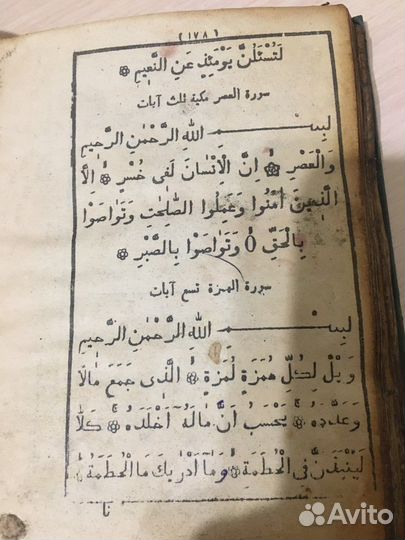 (١٧٨)
لَتُسْئَلُنَّ يَوْمَئِذٍ عَنِ النَّعِيمِ
سورة العصر مكية ثلث آيات
بِسْمِ اللّٰهِ الرَّحْمٰنِ الرَّحِيمِ
وَالْعَصْرِ اِنَّ الْاِنْسَانَ لَفِى خُسْرٍ اِلَّا
الَّذِينَ اٰمَنُوا وَعَمِلُوا الصَّالِحَاتِ وَتَوَاصَوْا
بِالْحَقِّ وَتَوَاصَوْا بِالصَّبْرِ
سورة الهمزة تسع آيات
بِسْمِ اللّٰهِ الرَّحْمٰنِ الرَّحِيمِ
وَيْلٌ لِكُلِّ هُمَزَةٍ لُمَزَةٍ الَّذِى جَمَعَ مَالًا
وَعَدَّدَهُ يَحْسَبُ اَنَّ مَالَهُٓ اَخْلَدَهُ كَلَّا
لَيُنْبَذَنَّ فِى الْحُطَمَةِ وَمَٓا اَدْرٰيكَ مَا الْحُطَمَةُ
نا
Avito